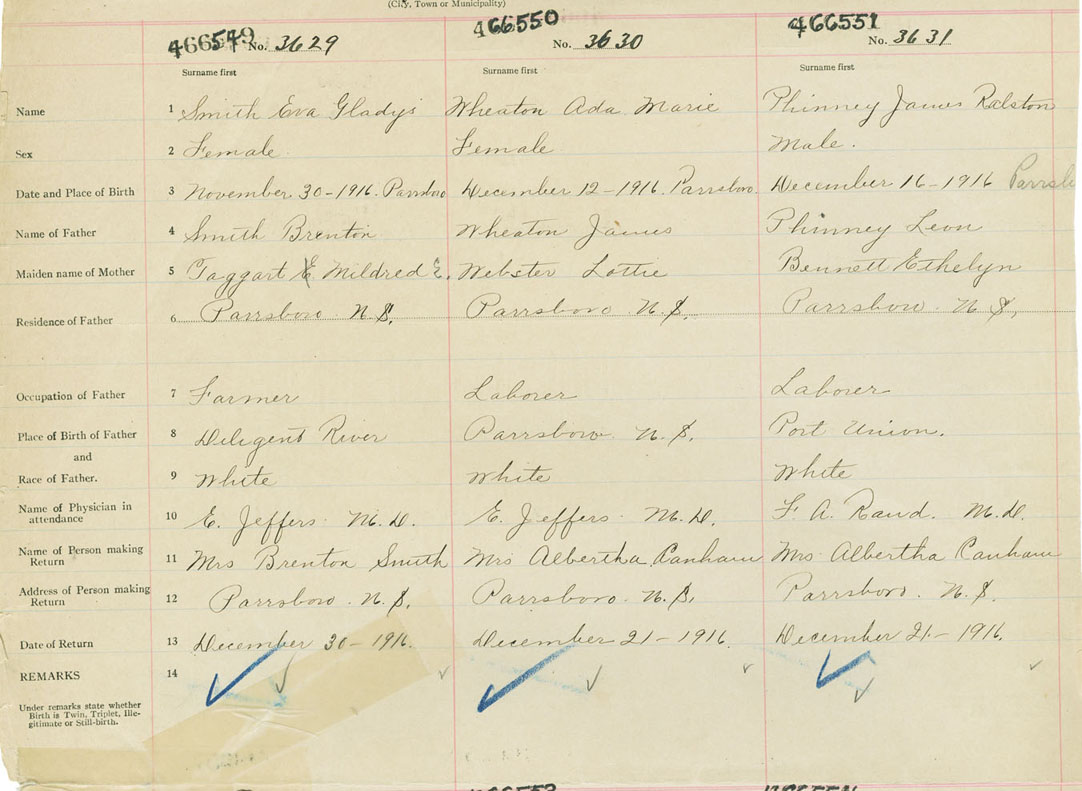 (City, Town or Municipality)
466549 No. 3629 466550 No. 3630 466551 No. 3631
Surname first Surname first Surname first
Name 1 Smith Eva Gladys Wheaton Ada Marie Phinney James Ralston
Sex 2 Female Female Male.
Date and Place of Birth 3 November 30-1916. Parrsboro December 12-1916. Parrsboro. December 16-1916
Name of Father 4 Smith Brenton Wheaton James Phinney Leon
Maiden name of Mother 5 Taggart Mildred E. Webster Lottie Bennett Ethelyn
Residence of Father 6 Parrsboro N.S. Parrsboro N.S. Parrsboro. N.S.
Occupation of Father 7 Farmer Laborer Laborer
Place of Birth of Father 8 Diligent River Parrsboro N.S. Port Union.
and
Race of Father. 9 White White White
Name of Physician in
attendance 10 E. Jeffers. M.D. E. Jeffers. M.D. F. A. Rand. M.D.
Name of Person making
Return 11 Mrs Brenton Smith Mrs Albertha Canham Mrs Albertha Canham
Address of Person making
Return 12 Parrsboro. N.S. Parrsboro. N.S. Parrsboro. N.S.
Date of Return 13 December 30-1916. December 21-1916. December 21-1916.
REMARKS 14
Under remarks state whether
Birth is Twin, Triplet, Ille-
gitimate or Still-birth.